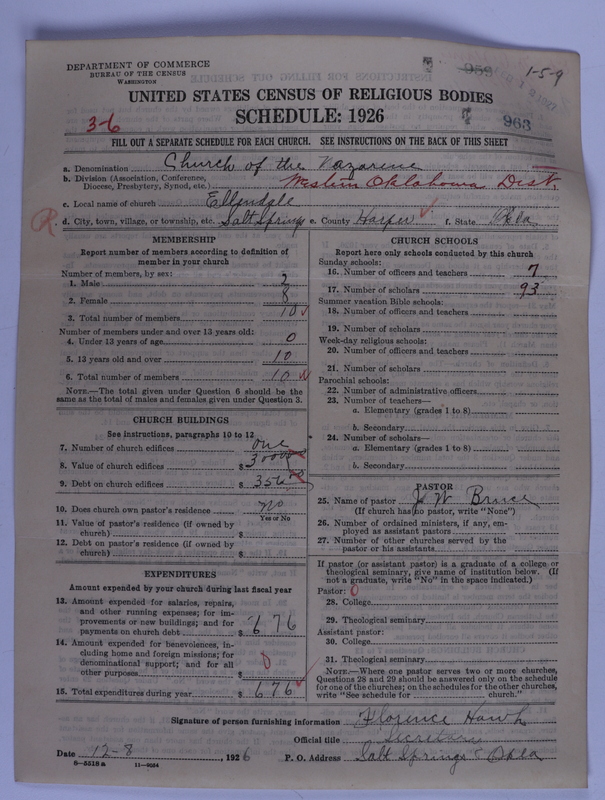 DEPARTMENT OF COMMERCE
BUREAU OF THE CENSUS
WASHINGTON
959
1-5-9
UNITED STATES CENSUS OF RELIGIOUS BODIES
SCHEDULE: 1926
3-6
963
FILL OUT A SEPARATE SCHEDULE FOR EACH CHURCH. SEE INSTRUCTIONS ON THE BACK OF THIS SHEET
a. Denomination Church of the Nazarene
b. Division (Association, Conference, Diocese, Presbytery, Synod, etc.) Western Oklahoma Dist.
c. Local name of church Ellendale
R
d. City, town, village, or township, etc. Salt Springs e. County Harper f. State Okla.
MEMBERSHIP
Report number of members according to definition of
member in your church
Number of members, by sex:
1. Male 2
2. Female 8
3. Total number of members 10
Number of members under and over 13 years old:
4. Under 13 years of age 0
5. 13 years old and over 10
6. Total number of members 10
NOTE.—The total given under Question 6 should be
same as the total of males and females given under Question 3.
CHURCH BUILDINGS
See instructions, paragraphs 10 to 12
7. Number of church edifices one
8. Value of church edifices $ 3000
9. Debt on church edifices $ 356
10. Does church own pastor's residence no
Yes or No
11. Value of pastor's residence (if owned by
church) $
12. Debt on pastor's residence (if owned by
church) $
EXPENDITURES
Amount expended by your church during last fiscal year
13. Amount expended for salaries, repairs,
and other running expenses; for im-
provements or new buildings; and for
payments on church debt $ 676
14. Amount expended for benevolences, in-
cluding home and foreign missions; for
denominational support; and for all
other purposes 0
15. Total expenditures during year $ 676
CHURCH SCHOOLS
Report here only schools conducted by this church
Sunday schools:
16. Number of officers and teachers 7
17. Number of scholars 93
Summer vacation Bible schools:
18. Number of officers and teachers
19. Number of scholars
Week-day religious schools:
20. Number of officers and teachers
21. Number of scholars
Parochial schools:
22. Number of administrative officers
23. Number of teachers—
a. Elementary (grades 1 to 8)
b. Secondary
24. Number of scholars—
a. Elementary (grades 1 to 8)
b. Secondary
PASTOR
25. Name of pastor J. W. Bruce
(If church has no pastor, write "None")
26. Number of ordained ministers, if any, em-
ployed as assistant pastors
27. Number of other churches served by the
pastor or his assistants
If pastor (or assistant pastor) is a graduate of a college or
theological seminary, give name of institution below. (If
not a graduate, write "No" in the space indicated.)
Pastor: 0
28. College
29. Theological seminary
Assistant pastor:
30. College
31. Theological seminary
NOTE.—Where one pastor serves two or more churches,
Questions 28 and 29 should be answered only on the schedule
for one of the churches; on the schedules for the other churches,
write "See schedule for church."
Signature of person furnishing information Florence Hawk
Official title Secretary
Date 12-8, 1926 P. O. Address Salt Springs Okla
8—5518a 11—9054